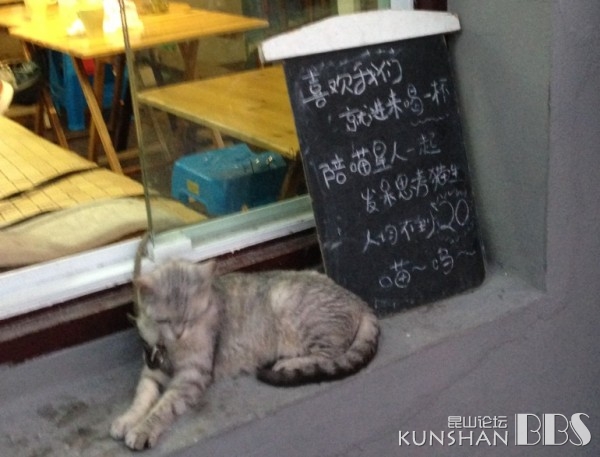 喜欢我们
就进来喝一杯
陪喵星人一起
发呆思考猫生
人均不到20
喵~呜~
昆山论坛
KUNSHAN BBS